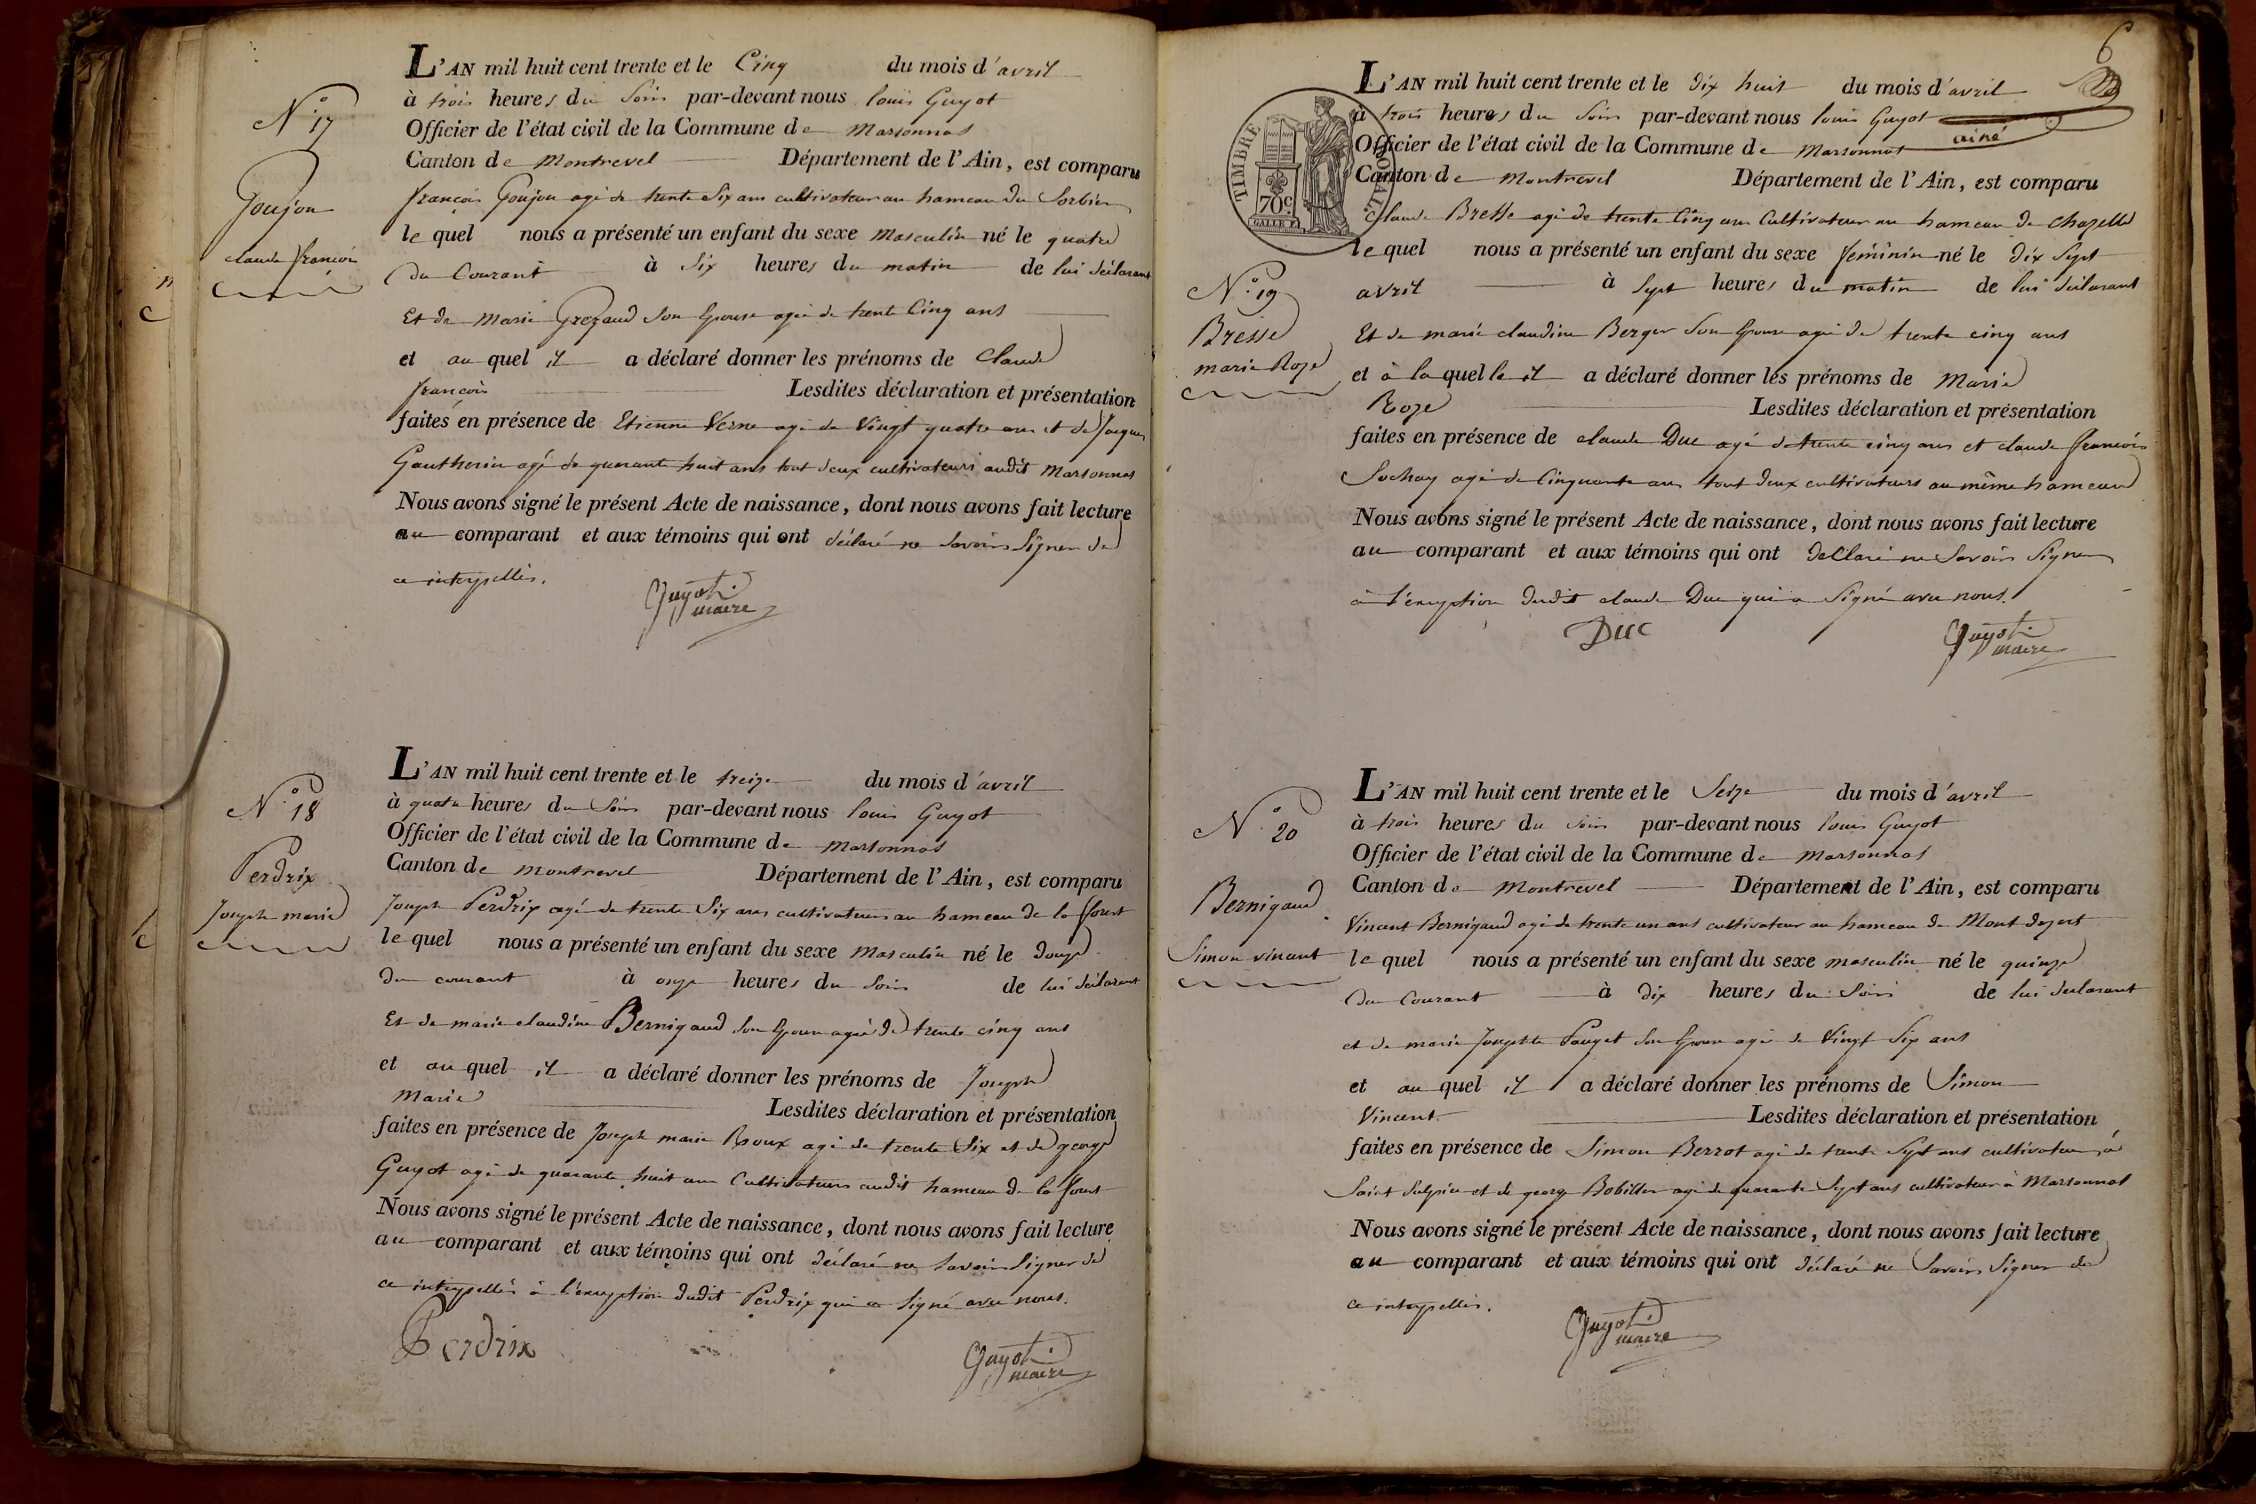 L'AN mil huit cent trente et le Cinq du mois d'avril
à trois heures du Soir par-devant nous louis Guyot
Officier de l'état civil de la Commune de Marsonnas
Canton de Montrevel Département de l'Ain, est comparu
françois Goujon agé de trente Six ans cultivateur au hameau du Sorbier
lequel nous a présenté un enfant du sexe Masculin né le quatre
du Courant à Six heures du matin de lui déclarant
Et de Marie Grezaud Son Epouse agée de trent Cinq ans
et auquel il a déclaré donner les prénoms de Claude
françois Lesdites déclaration et présentation
faites en présence de Etienne Verne agé de Vingt quatre ans et de Jacques
Gautherin agé de quarante huit ans tout deux cultivateurs audit Marsonnas
Nous avons signé le présent Acte de naissance, dont nous avons fait lecture
au comparant et aux témoins qui ont déclaré ne Savoir Signer de
ce interpellés.
Guyot
maire
N° 17
Goujon
claude françois
L'AN mil huit cent trente et le treize du mois d'avril
à quatre heures du Soir par-devant nous louis Guyot
Officier de l'état civil de la Commune de Marsonnas
Canton de Montrevel Département de l'Ain, est comparu
Joseph Perdrix agé de trente Six ans cultivateur au hameau de la foret
lequel nous a présenté un enfant du sexe Masculin né le douze
du courant à onze heures du Soir de lui déclarant
Et de marie claudine Bernigaud Son Epouse agée de trente cinq ans
et auquel il a déclaré donner les prénoms de Joseph
Marie Lesdites déclaration et présentation
faites en présence de Joseph marie Roux agé de trente Six et de george
Guyot agé de quarante huit ans Cultivateurs audit hameau de la foret
Nous avons signé le présent Acte de naissance, dont nous avons fait lecture
au comparant et aux témoins qui ont déclaré ne Savoir Signer de
ce interpellés à l'exception dudit Perdrix qui a Signé avec nous.
Perdrix
Guyot
maire
N° 18
Perdrix
Joseph marie
6
L'AN mil huit cent trente et le dix huit du mois d'avril
à trois heures du Soir par-devant nous louis Guyot
ainé
Officier de l'état civil de la Commune de Marsonnas
Canton de Montrevel Département de l'Ain, est comparu
Claude Bresse agé de trente Cinq ans Cultivateur au hameau de Chazelle
lequel nous a présenté un enfant du sexe féminin né le dix Sept
avril à Sept heures du matin de lui déclarant
Et de marie claudine Berger Son Epouse agée de trente cinq ans
et à laquelle il a déclaré donner les prénoms de Marie
Roze Lesdites déclaration et présentation
faites en présence de claude Duc agé de trente cinq ans et claude françois
Sochay agé de Cinquante ans tout deux cultivateurs au même hameau
Nous avons signé le présent Acte de naissance, dont nous avons fait lecture
au comparant et aux témoins qui ont déclaré ne Savoir Signer
à l'exception dudit claude Duc qui a Signé avec nous.
Duc
Guyot
maire
TIMBRE ROYAL
70c
N° 19
Bresse
marie Roze
L'AN mil huit cent trente et le Seize du mois d'avril
à trois heures du Soir par-devant nous louis Guyot
Officier de l'état civil de la Commune de Marsonnas
Canton de Montrevel Département de l'Ain, est comparu
Vincent Bernigaud agé de trente un ans cultivateur au hameau de Mont dezert
lequel nous a présenté un enfant du sexe masculin né le quinze
du Courant à dix heures du Soir de lui déclarant
et de marie Josephte Pauget Son Epouse agée de Vingt Six ans
et auquel il a déclaré donner les prénoms de Simon
Vincent Lesdites déclaration et présentation
faites en présence de Simon Berrot agé de trente Sept ans cultivateur à
Saint Sulpice et de george Bobillon agé de quarante Sept ans cultivateur à Marsonnas
Nous avons signé le présent Acte de naissance, dont nous avons fait lecture
au comparant et aux témoins qui ont déclaré ne Savoir Signer de
ce interpellés.
Guyot
maire
N° 20
Bernigaud
Simon vincent